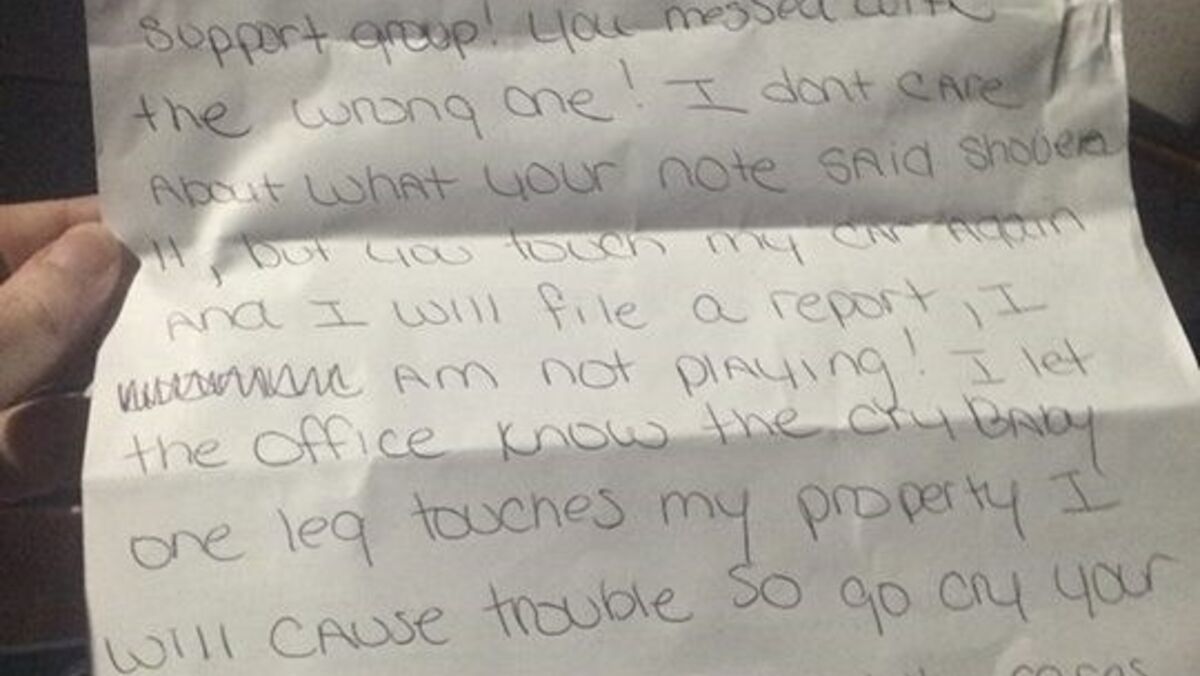 support group! You messed with
the wrong one! I dont CARe
About WHAt your note SAid shove
it, but you touch my CAR AgAin
And I will file a report, I
Am not PlAying! I let
the office know the cry BABy
one leg touches my property I
Will CAUSe trouble So go cry your